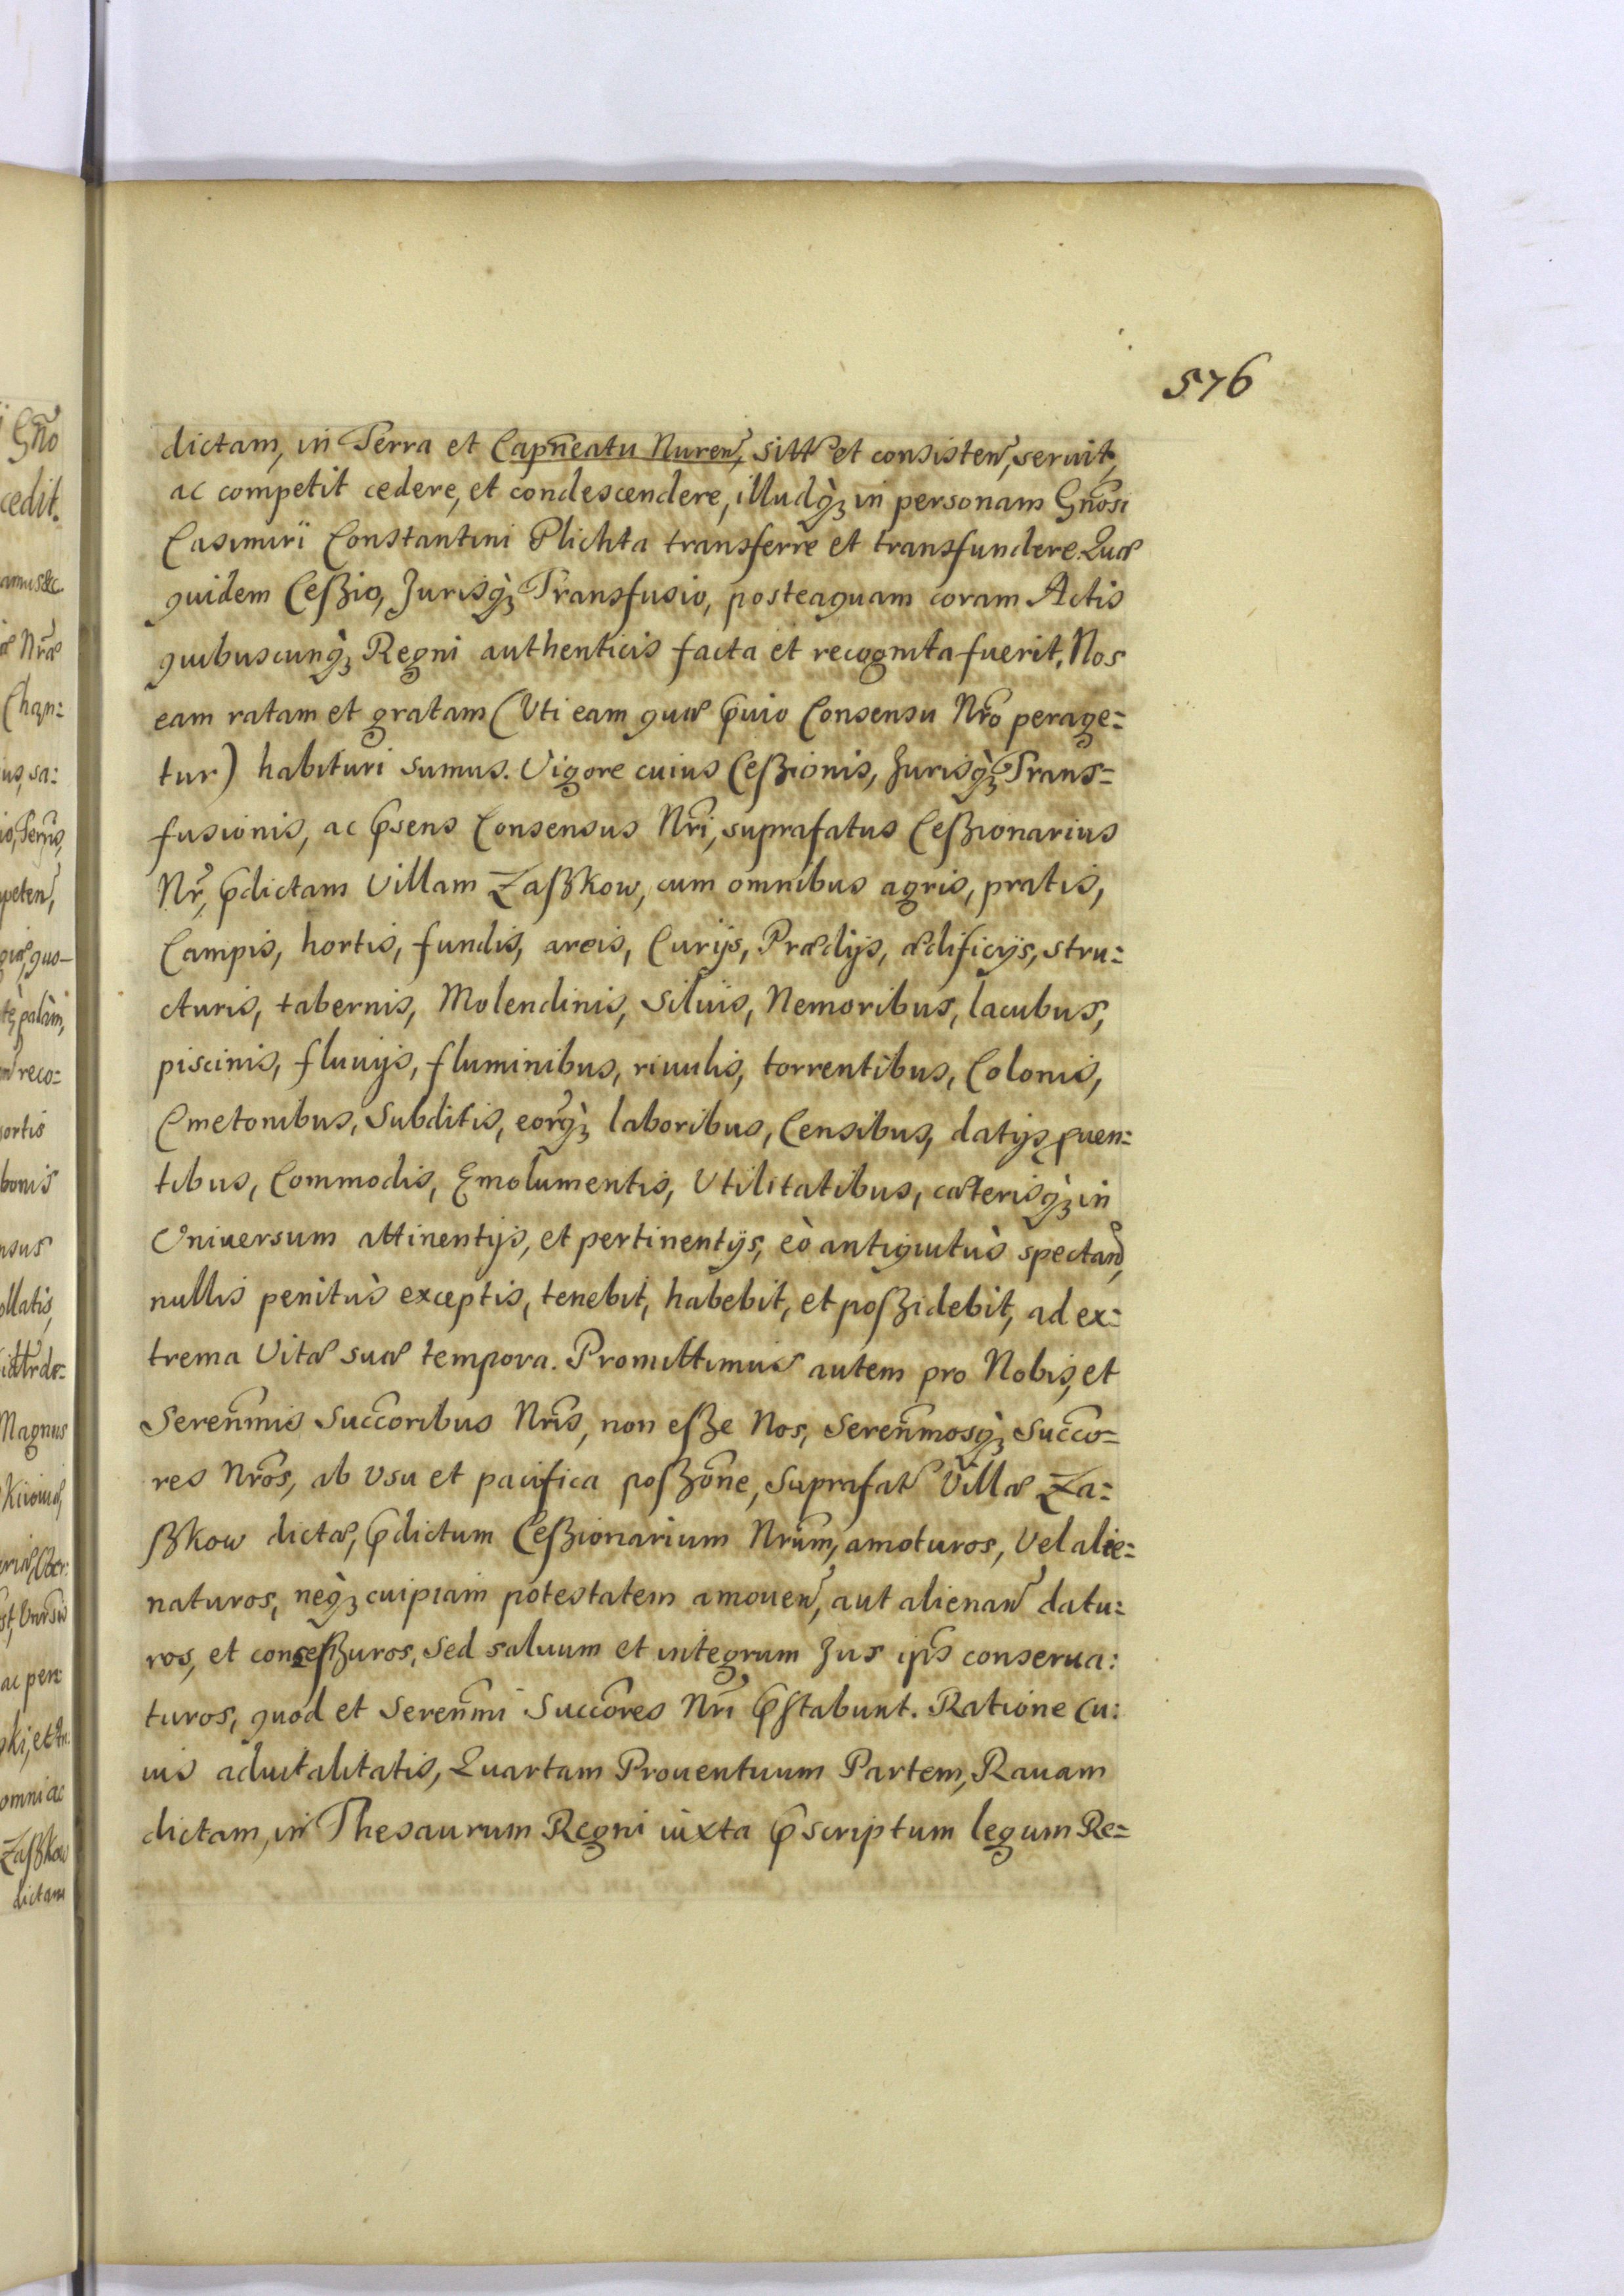 576
dictam, in Terra et Capñeatu Nureñ, sitt et consisteñ, seruit,
ac competit cedere, et condescendere, illudq̀ꝫ in personam Gñosi
Casimiri Constantini Plichta transferre et transfundere. Quæ
quidem Ceßio, Jurisq̀ꝫ Transfusio, posteaquam coram Actis
quibuscunq̀ꝫ Regni authenticis facta et recognita fuerit, Nos
eam ratam et gratam (Uti eam quæ p̃uio Consensu Nr̃o perage=
tur) habituri sumus. Vigore cuius Ceßionis, Jurisq̀ꝫ Trans=
fusionis, ac p̃sens Consensus Nr̃i, suprafatus Ceßionarius
Nr̃, p̃dictam Villam Zaßkow, cum omnibus agris, pratis,
Campis, hortis, fundis, areis, Curijs, Prædijs, ædificijs, stru=
cturis, tabernis, Molendinis, Siluis, Nemoribus, lacubus,
piscinis, fluuijs, fluminibus, riuulis, torrentibus, Colonis,
Cmetonibus, Subditis, eor̃q̀ꝫ laboribus, Censibus, datijs, ꝓuen=
tibus, Commodis, Emolumentis, Utilitatibus, cæterisq̀ꝫ in
Universum attinentijs, et pertinentijs, eò antiquitùs spectañ,
nullis penitùs exceptis, tenebit, habebit, et poßidebit, ad ex=
trema Vitæ suæ tempora. Promittimus autem pro Nobis, et
Sereñmis Succ̃oribus Nr̃is, non eße Nos, Sereñmosq̀ꝫ Succ̃o=
res Nr̃os, ab Usu et pacifica poßõne, Suprafatæ Villæ Za=
ßkow dictæ, p̃dictum Ceßionarium Nr̃um, amoturos, Vel alie=
naturos, neq̀ꝫ cuipiam potestatem amoueñ, aut alienañ datu=
ros, et conceßuros, Sed saluum et integrum Jus ip̃s conserua:
turos, quod et Sereñmi Succ̃ores Nr̃i p̃stabunt. Ratione cu:
ius aduitalitatis, Quartam Prouentuum Partem, Rauam
dictam, in Thesaurum Regni iuxta p̃scriptum legum Re=